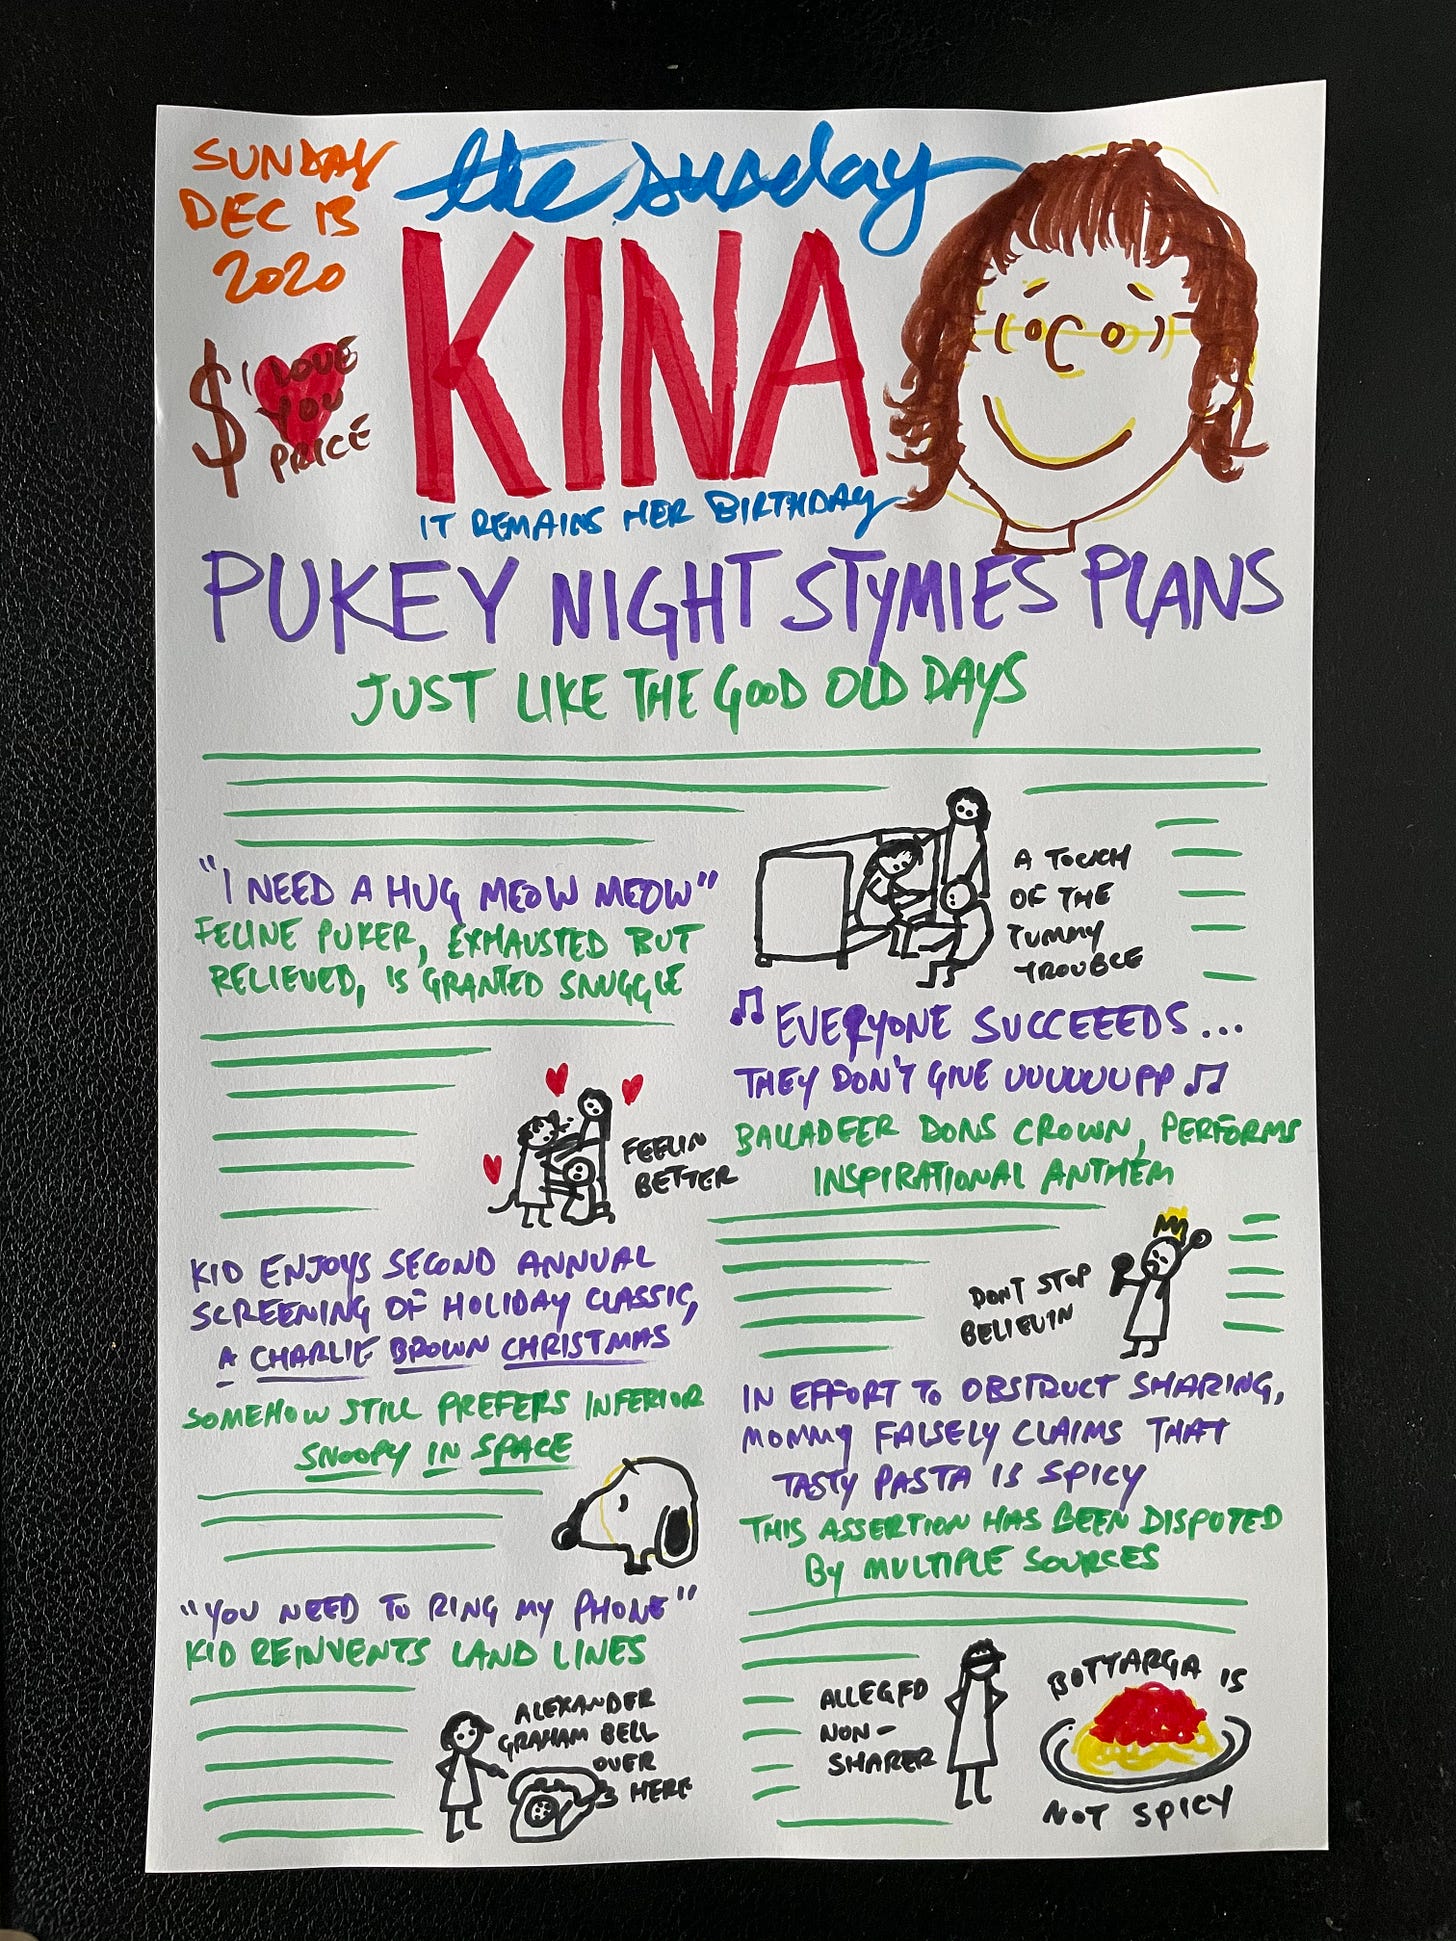 SUNDAY
DEC 13
2020
$ I LOVE
YOU
PRICE
the sunday
KINA
IT REMAINS HER BIRTHDAY
PUKEY NIGHT STYMIES PLANS
JUST LIKE THE GOOD OLD DAYS
"I NEED A HUG MEOW MEOW"
FELINE PUKER, EXHAUSTED BUT
RELIEVED, IS GRANTED SNUGGLE
FEELIN
BETTER
KID ENJOYS SECOND ANNUAL
SCREENING OF HOLIDAY CLASSIC,
A CHARLIE BROWN CHRISTMAS
SOMEHOW STILL PREFERS INFERIOR
SNOOPY IN SPACE
"YOU NEED TO RING MY PHONE"
KID REINVENTS LAND LINES
ALEXANDER
GRAHAM BELL
OVER
HERE
A TOUCH
OF THE
TUMMY
TROUBLE
♫ EVERYONE SUCCEEEDS...
THEY DON'T GIVE UUUUUUPP ♫
BALLADEER DONS CROWN, PERFORMS
INSPIRATIONAL ANTHEM
DONT STOP
BELIEVIN
IN EFFORT TO OBSTRUCT SHARING,
MOMMY FALSELY CLAIMS THAT
TASTY PASTA IS SPICY
THIS ASSERTION HAS BEEN DISPUTED
By MULTIPLE SOURCES
ALLEGED
NON-
SHARER
BOTTARGA IS
NOT SPICY